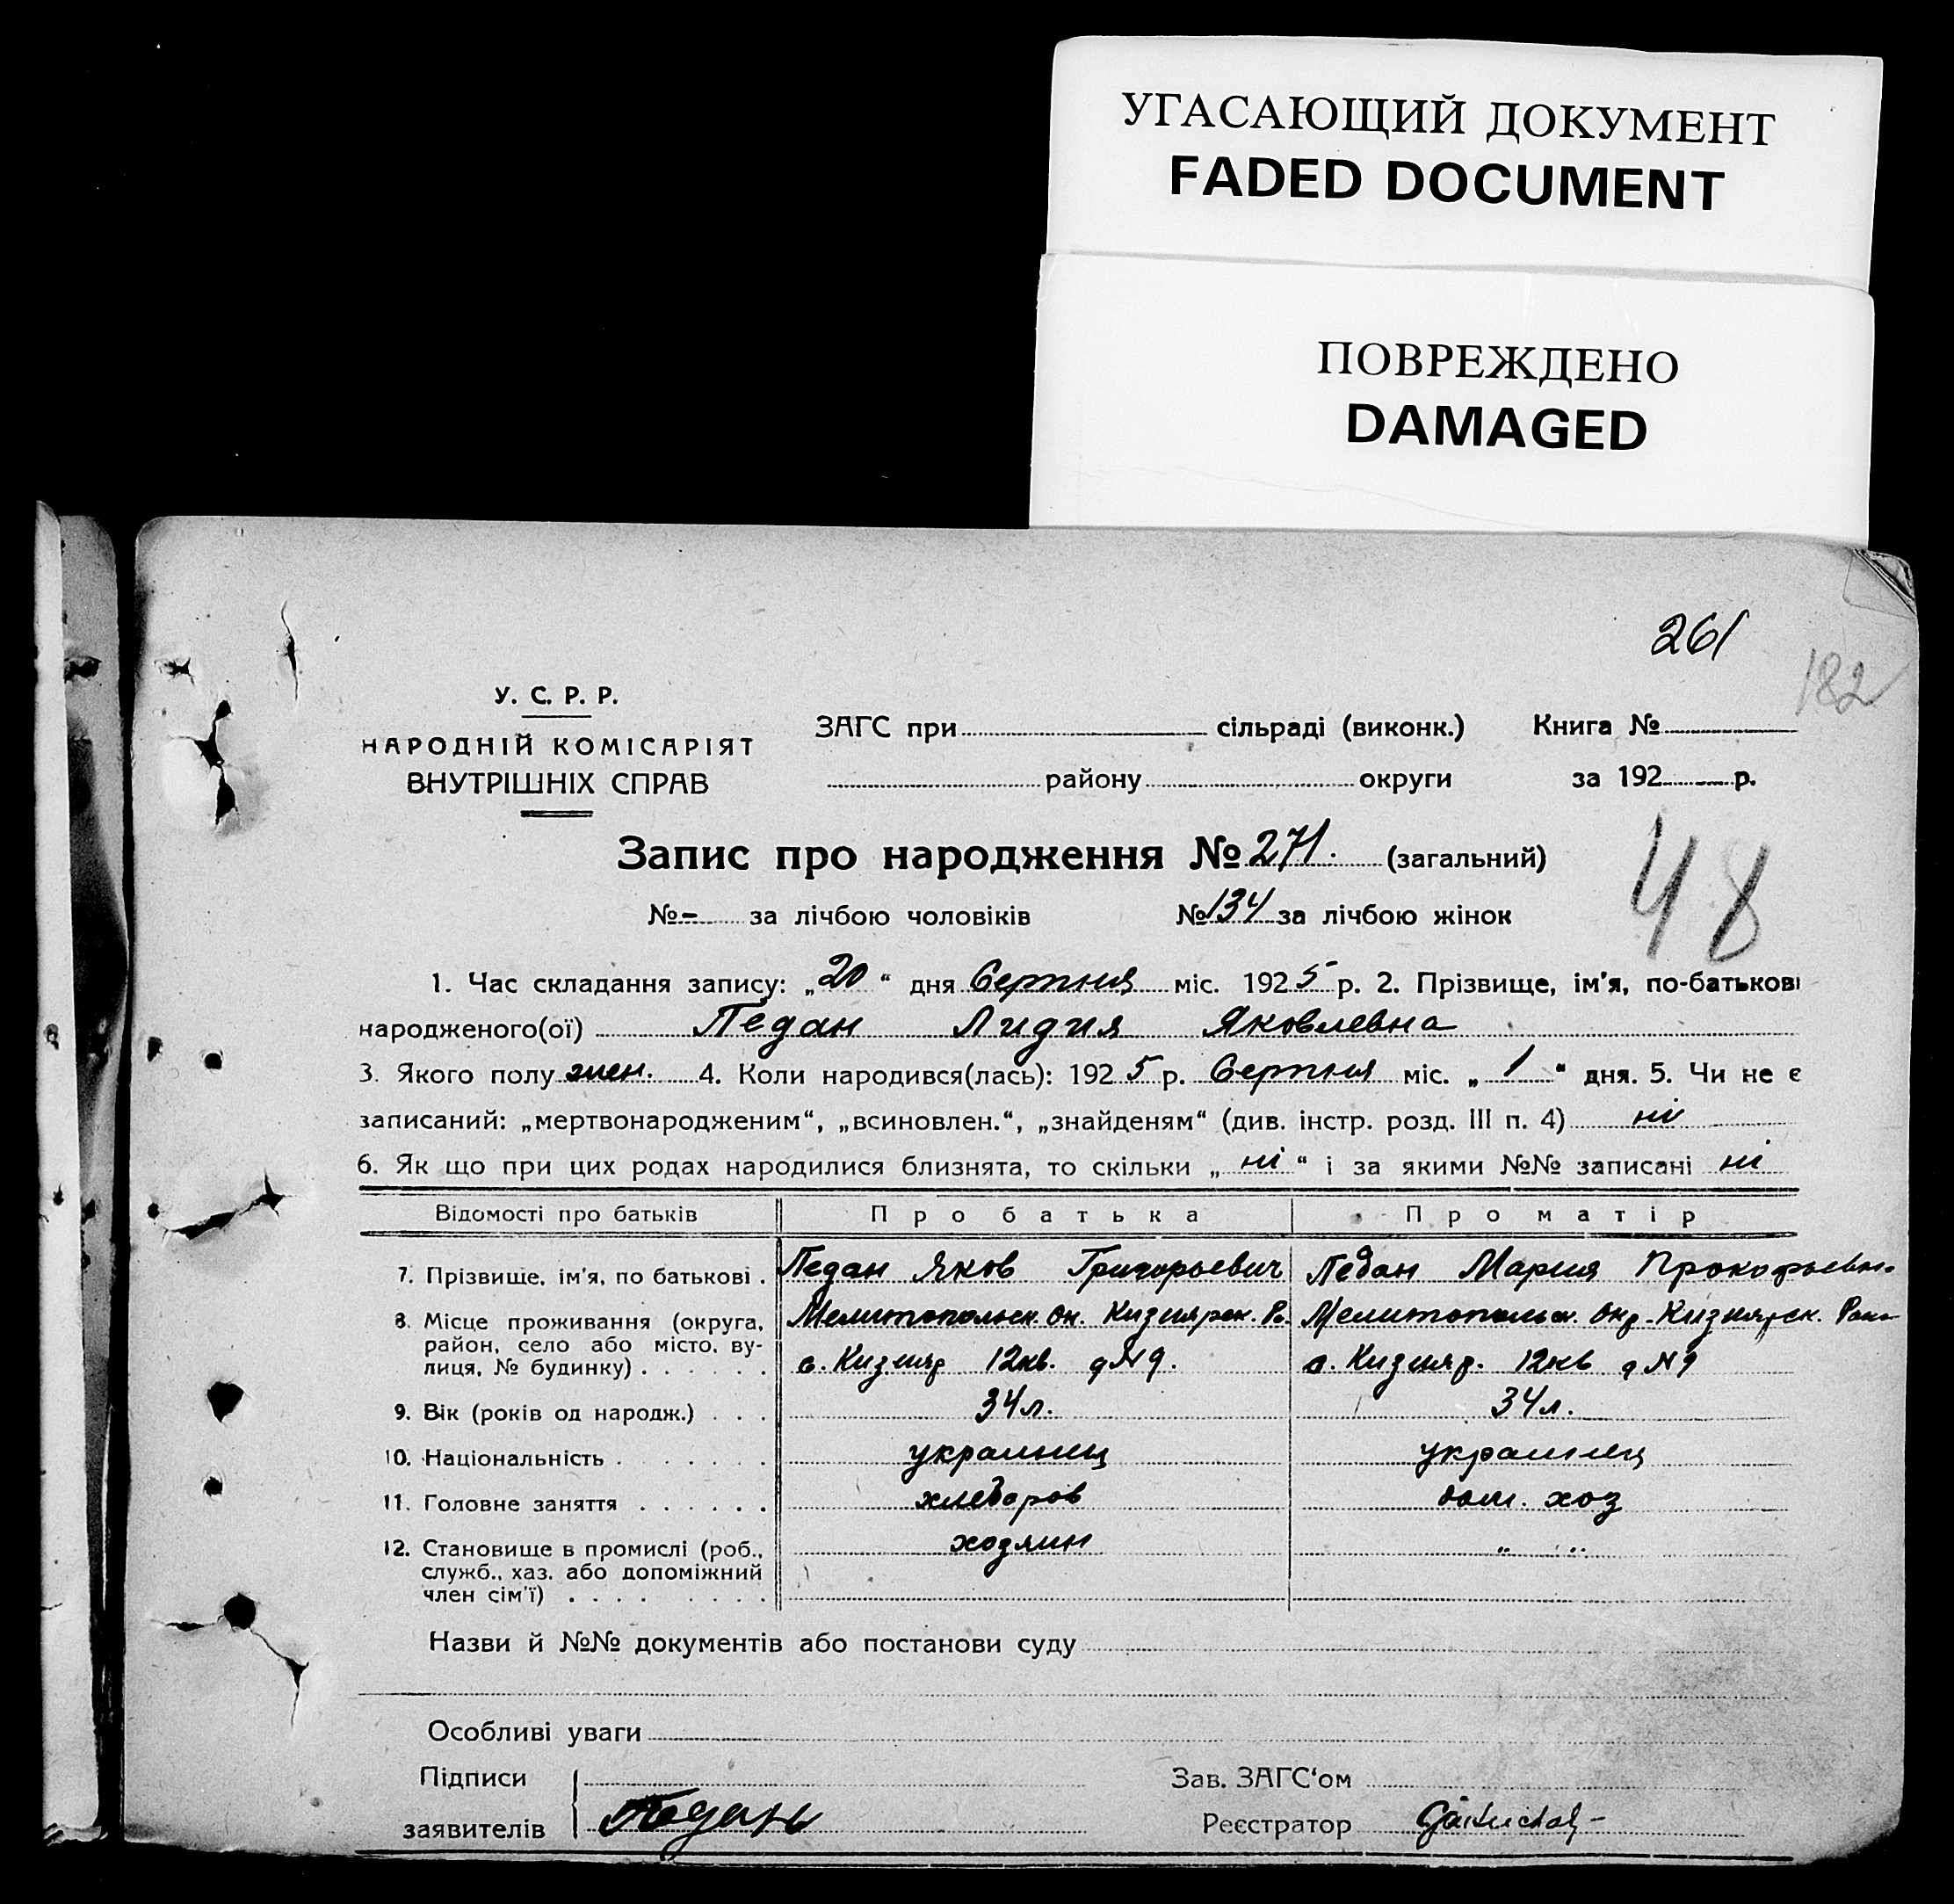 УГАСАЮЩИЙ ДОКУМЕНТ
FADED DOCUMENT
ПОВРЕЖДЕНО
DAMAGED
261
182
У. С. Р. Р.
НАРОДНІЙ КОМІСАРІЯТ
ВНУТРІШНІХ СПРАВ
ЗАГС при сільраді (виконк.) Книга №
району округи за 192 р.
Запис про народження № 271. (загальний)
48
№ - за лічбою чоловіків № 134 за лічбою жінок
1. Час складання запису: „20“ дня Серпня міс. 1925 р. 2. Прізвище, ім'я, по-батькові
народженого(ої) Педан Лидия Яковлевна
3. Якого полу жен. 4. Коли народився(лась): 1925 р. Серпня міс. „1“ дня. 5. Чи не є
записаний: „мертвонародженим“, „всиновлен.“, „знайденям“ (див. інстр. розд. III п. 4) ні
6. Як що при цих родах народилися близнята, то скільки „ні“ і за якими №№ записані ні
Відомості про батьків Про батька Про матір
7. Прізвище, ім'я, по батькові . Педан Яков Григорьевич Педан Мария Прокофьевн.
8. Місце проживання (округа, Мелитопольск. ок. Кизиярск. Ра. Мелитопольск. Окр. Кизиярск. Рай
район, село або місто, ву-
лиця, № будинку) . . . . . . с. Кизияр 12кв. д№9. с. Кизияр. 12кв д№9
9. Вік (років од народж.) . . . 34л. 34л.
10. Національність . . . . . . . украинец украинец
11. Головне заняття . . . . . . хлебороб дом. хоз
12. Становище в промислі (роб., хозяин „ „
служб., хаз. або допоміжний
член сім'ї) . . . . . . . .
Назви й №№ документів або постанови суду
Особливі уваги
Підписи Зав. ЗАГС'ом
заявителів Педань Реєстратор